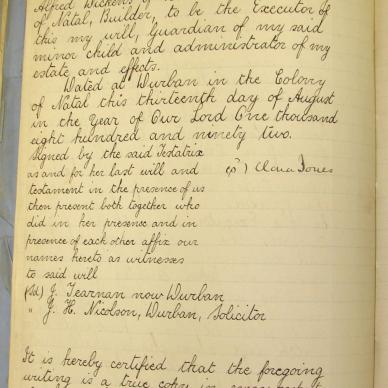 Alfred Wickens of
of Natal, Builder, to be the Executor of
this my will, Guardian of my said
minor child and administrator of my
estate and effects.
Dated at Durban in the Colony
of Natal this thirteenth day of August
in the Year of Our Lord One thousand
eight hundred and ninety two.
Signed by the said Testatrix
as and for her last will and (sd) Clara Jones
testament in the presence of us
then present both together who
did in her presence and in
presence of each other affix our
names hereto as witnesses
to said will
(Sd) J. Tearnan now Durban
" J. H. Nicolson, Durban, Solicitor
It is hereby certified that the foregoing
writing is a true copy in